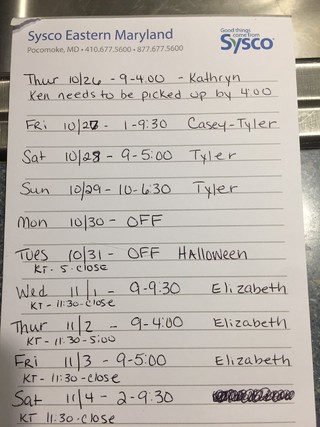 Sysco Eastern Maryland
Pocomoke, MD • 410.677.5600 • 877.677.5600
Good things
come from
Sysco
Thur 10/26 - 9-4:00 - Kathryn
Ken needs to be picked up by 4:00
Fri 10/27 - 1-9:30 Casey-Tyler
Sat 10/28 - 9-5:00 Tyler
Sun 10/29 - 10-6:30 Tyler
Mon 10/30 - OFF
Tues 10/31 - OFF Halloween
KT - 5-close
Wed 11/1 - 9-9:30 Elizabeth
KT - 11:30-close
Thur 11/2 - 9-4:00 Elizabeth
KT - 11:30-5:00
Fri 11/3 - 9-5:00 Elizabeth
KT - 11:30-close
Sat 11/4 - 2-9:30
KT 11:30-close